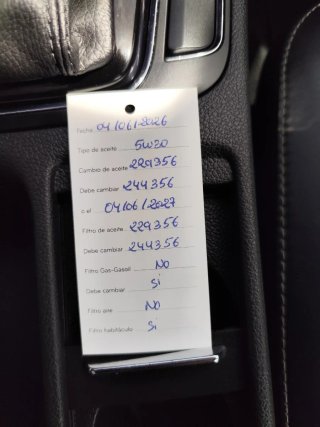 Fecha 04/06/2026
Tipo de aceite 5W30
Cambio de aceite 229356
Debe cambiar 244356
o el 04/06/2027
Filtro de aceite 229356
Debe cambiar 244356
Filtro Gas-Gasoil No
Debe cambiar si
Filtro aire No
Filtro habitáculo Si